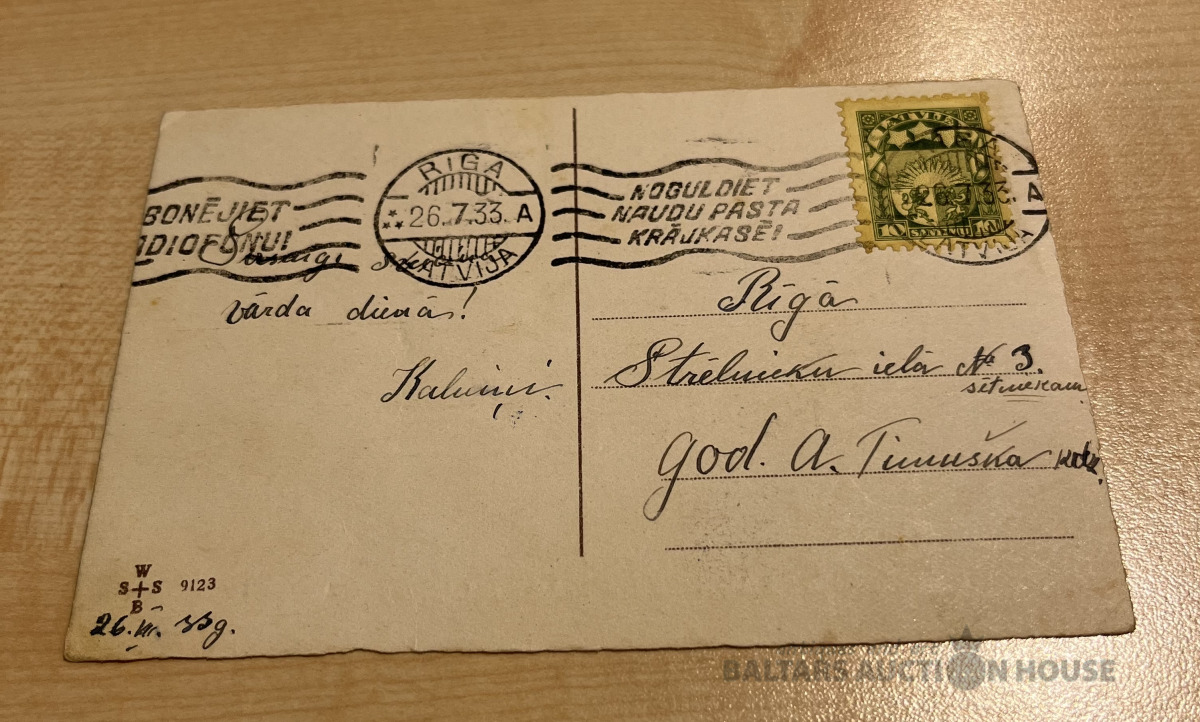 BONĒJIET
DIOFONU!
RĪGA
26.7.33. A
LATVIJA
NOGULDIET
NAUDU PASTA
KRĀJKASĒ!
LATVIJA
10 SANTIMU 10
26.7.33
A
LATVIJA
vārda dienā!
Kalniņi.
Rīgā
Strēlnieku ielā № 3.
sētniekam
god. A. Timuška
W
S+S 9123
B
26. VII. 33g.
BALTARS AUCTION HOUSE